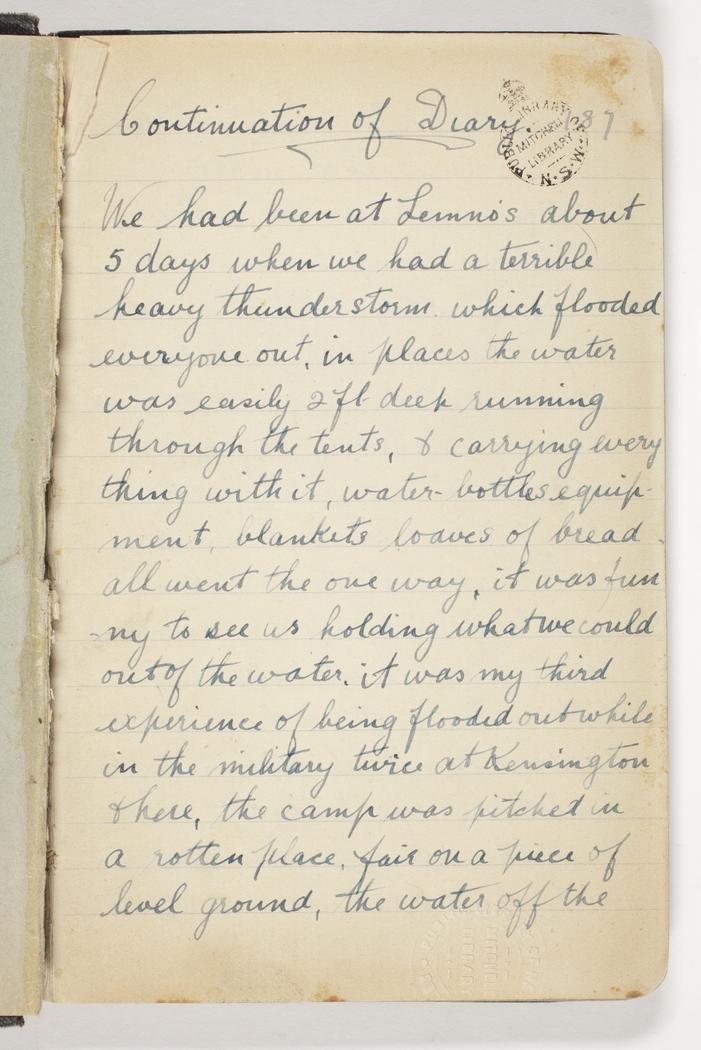 Continuation of Diary. 187
PUBLIC LIBRARY OF N.S.W.
MITCHELL
LIBRARY
We had been at Lemnos about
5 days when we had a terrible
heavy thunderstorm. which flooded
everyone out, in places the water
was easily 2 ft deep running
through the tents, & carrying every
thing with it, water-bottles equip-
ment, blankets loaves of bread
all went the one way, it was fun
-ny to see us holding what we could
out of the water. it was my third
experience of being flooded out while
in the military twice at Kensington
& here, the camp was pitched in
a rotten place, fair on a piece of
level ground, the water off the